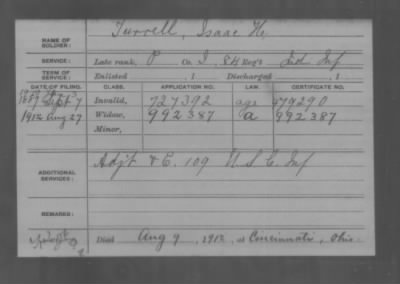 NAME OF SOLDIER: Turrell, Isaac H.
SERVICE: Late rank, P Co. I, 84 Reg't Ind Inf
TERM OF SERVICE: Enlisted , 1 Discharged , 1
DATE OF FILING. CLASS. APPLICATION NO. LAW. CERTIFICATE NO.
1889 Sept 7 Invalid, 727392 age 479290
1912 Aug 27 Widow, 992387 a 992387
Minor,
ADDITIONAL SERVICES: Adj't & C. 109 U.S.C. Inf
REMARKS:
Died Aug 9, 1912, at Cincinnati, Ohio.